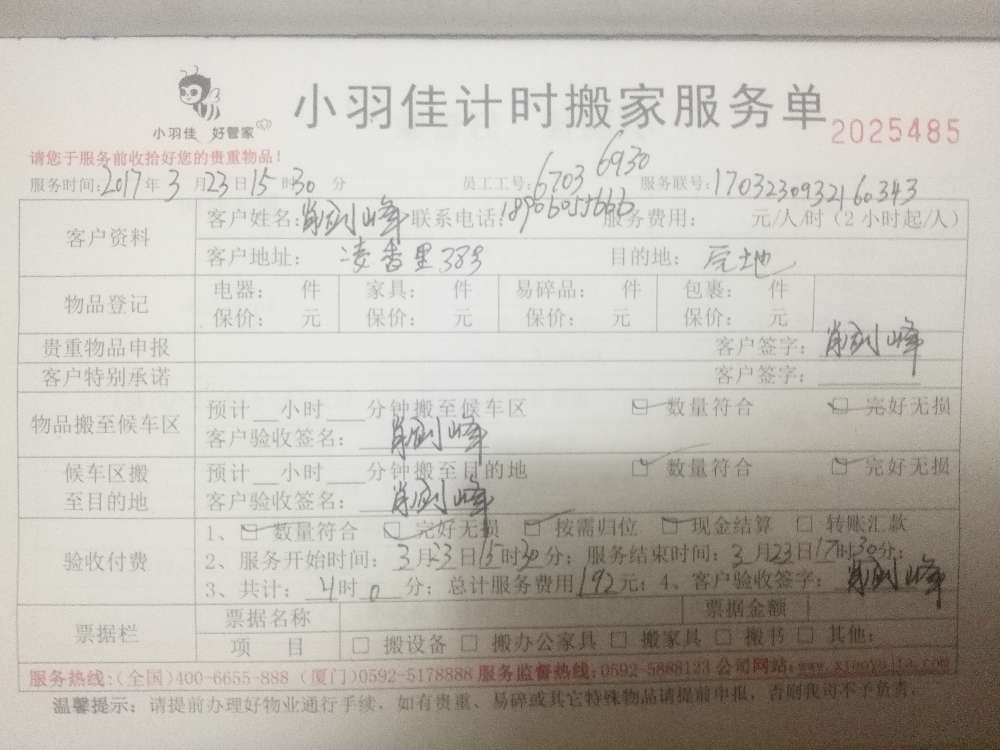 小羽佳 好管家
小羽佳计时搬家服务单
2025485
请您于服务前收拾好您的贵重物品！
6930
服务时间：2017年3月23日15时30分 员工工号：6703 服务联号：1703230932160343
客户资料 客户姓名：肖剑峰 联系电话：18906055666 服务费用： 元/人/时（2小时起/人）
客户地址： 凌香里38号 目的地： 后地
物品登记 电器： 件 家具： 件 易碎品： 件 包裹： 件
保价： 元 保价： 元 保价： 元 保价： 元
贵重物品申报 客户签字：肖剑峰
客户特别承诺 客户签字：
物品搬至候车区 预计__小时___分钟搬至候车区 数量符合 完好无损
客户验收签名：肖剑峰
候车区搬至目的地 预计__小时___分钟搬至目的地 数量符合 完好无损
客户验收签名：肖剑峰
验收付费 1、数量符合 完好无损 按需归位 现金结算 转账汇款
2、服务开始时间：3月23日15时30分；服务结束时间：3月23日17时30分；
3、共计：4时0分；总计服务费用192元；4、客户验收签字：肖剑峰
票据栏 票据名称 票据金额
项 目 搬设备 搬办公家具 搬家具 搬书 其他：
服务热线：(全国)400-6655-888 (厦门)0592-5178888 服务监督热线：0592-5888123 公司网站：www.xiaoyujia.com
温馨提示：请提前办理好物业通行手续，如有贵重、易碎或其它特殊物品请提前申报，否则我司不予负责。